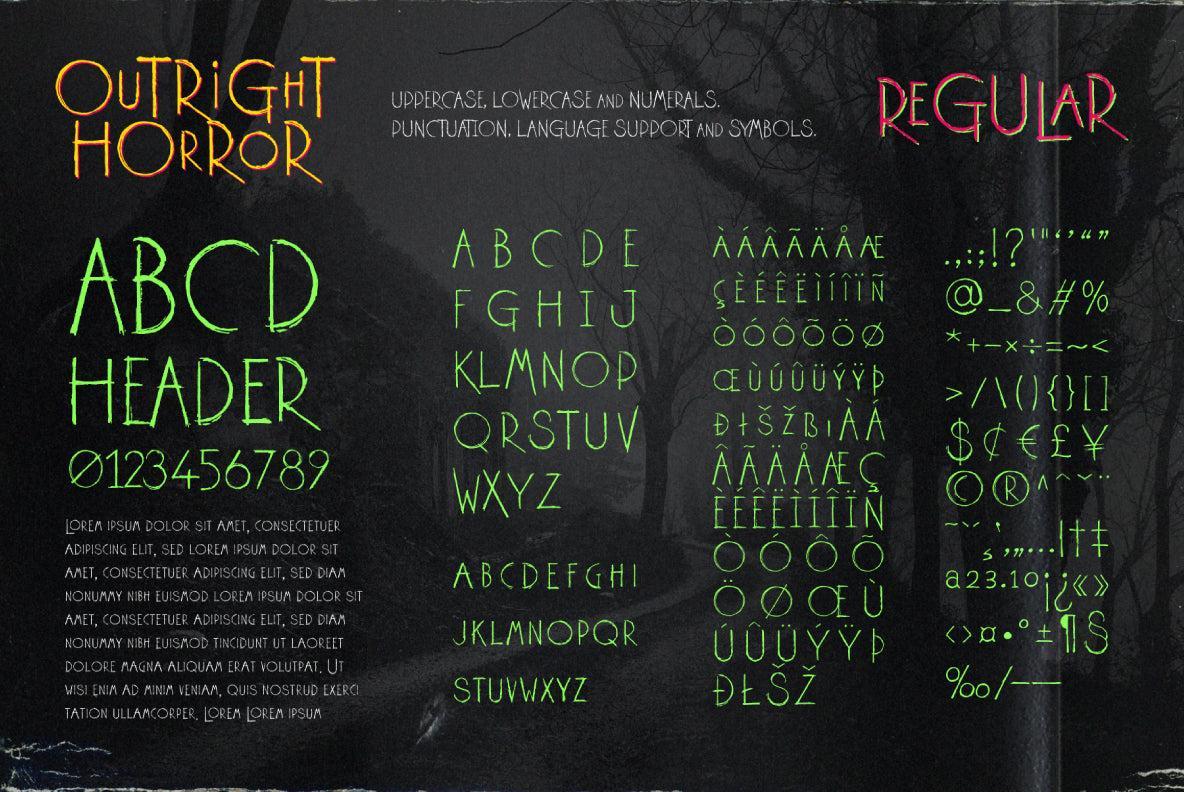 OUTRIGHT
HORROR
UPPERCASE, LOWERCASE AND NUMERALS.
PUNCTUATION, LANGUAGE SUPPORT AND SYMBOLS.
REGULAR
ABCD
HEADER
0123456789
LOREM IPSUM DOLOR SIT AMET, CONSECTETUER
ADIPISCING ELIT, SED LOREM IPSUM DOLOR SIT
AMET, CONSECTETUER ADIPISCING ELIT, SED DIAM
NONUMMY NIBH EUISMOD LOREM IPSUM DOLOR SIT
AMET, CONSECTETUER ADIPISCING ELIT, SED DIAM
NONUMMY NIBH EUISMOD TINCIDUNT UT LAOREET
DOLORE MAGNA ALIQUAM ERAT VOLUTPAT. UT
WISI ENIM AD MINIM VENIAM, QUIS NOSTRUD EXERCI
TATION ULLAMCORPER. LOREM LOREM IPSUM
A B C D E
F G H I J
K L M N O P
Q R S T U V
W X Y Z
A B C D E F G H I
J K L M N O P Q R
S T U V W X Y Z
À Á Â Ã Ä Å Æ
Ç È É Ê Ë Ì Í Î Ï Ñ
Ò Ó Ô Õ Ö Ø
Œ Ù Ú Û Ü Ý Ÿ Þ
Ð Ł Š Ž ß ı À Á
Â Ã Ä Å Æ Ç
È É Ê Ë Ì Í Î Ï Ñ
Ò Ó Ô Õ
Ö Ø Œ Ù
Ú Û Ü Ý Ÿ Þ
Ð Ł Š Ž
. , : ; ! ? ' " ‘ ’ “ ”
@ _ & # %
* + − × ÷ = ~ <
> / \ ( ) { } [ ]
$ ¢ € £ ¥
© ® ^ ˆ ˇ ¨
¸ ‚ „ … | † ‡
a 2 3 . 1 o ¡ ¿ « »
‹ › ¤ • ° ± ¶ §
‰ / – —